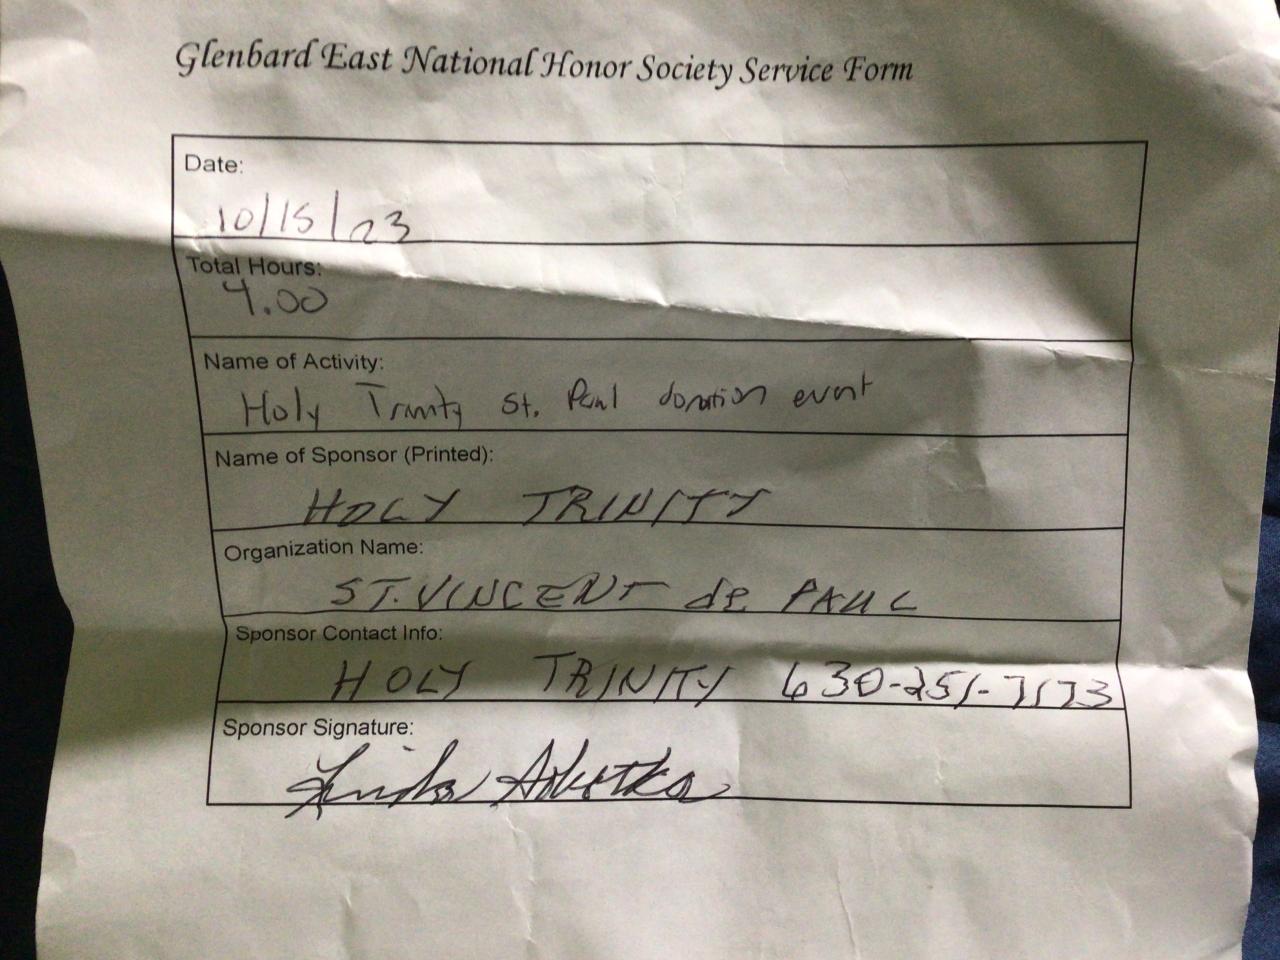 Glenbard East National Honor Society Service Form
Date:
10/15/23
Total Hours:
4.00
Name of Activity:
Holy Trinity St. Paul donation event
Name of Sponsor (Printed):
HOLY TRINITY
Organization Name:
ST. VINCENT de PAUL
Sponsor Contact Info:
HOLY TRINITY 630-251-7173
Sponsor Signature:
Linda